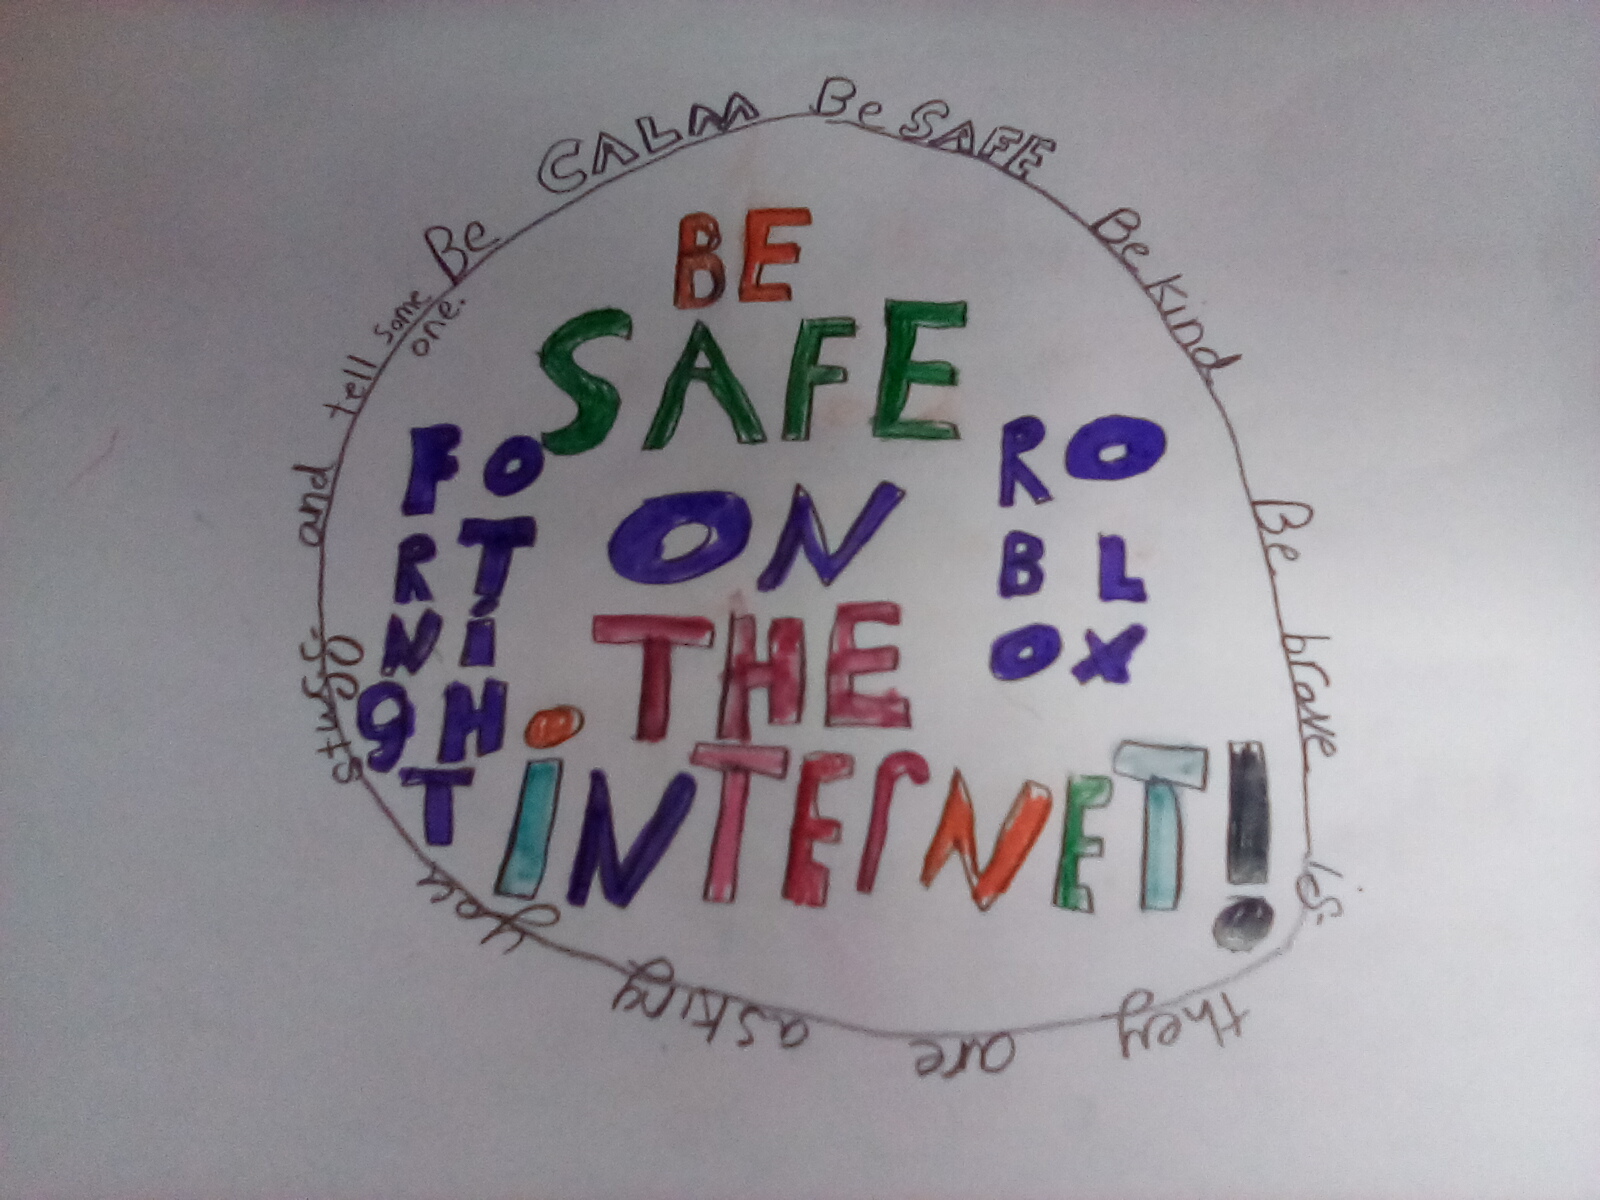 Be CALM Be SAFE Be kind Be brave
they are asking you
and tell some one.
BE
SAFE
ON
THE
INTERNET!
FO
RT
Ni
gH
T
RO
BL
OX